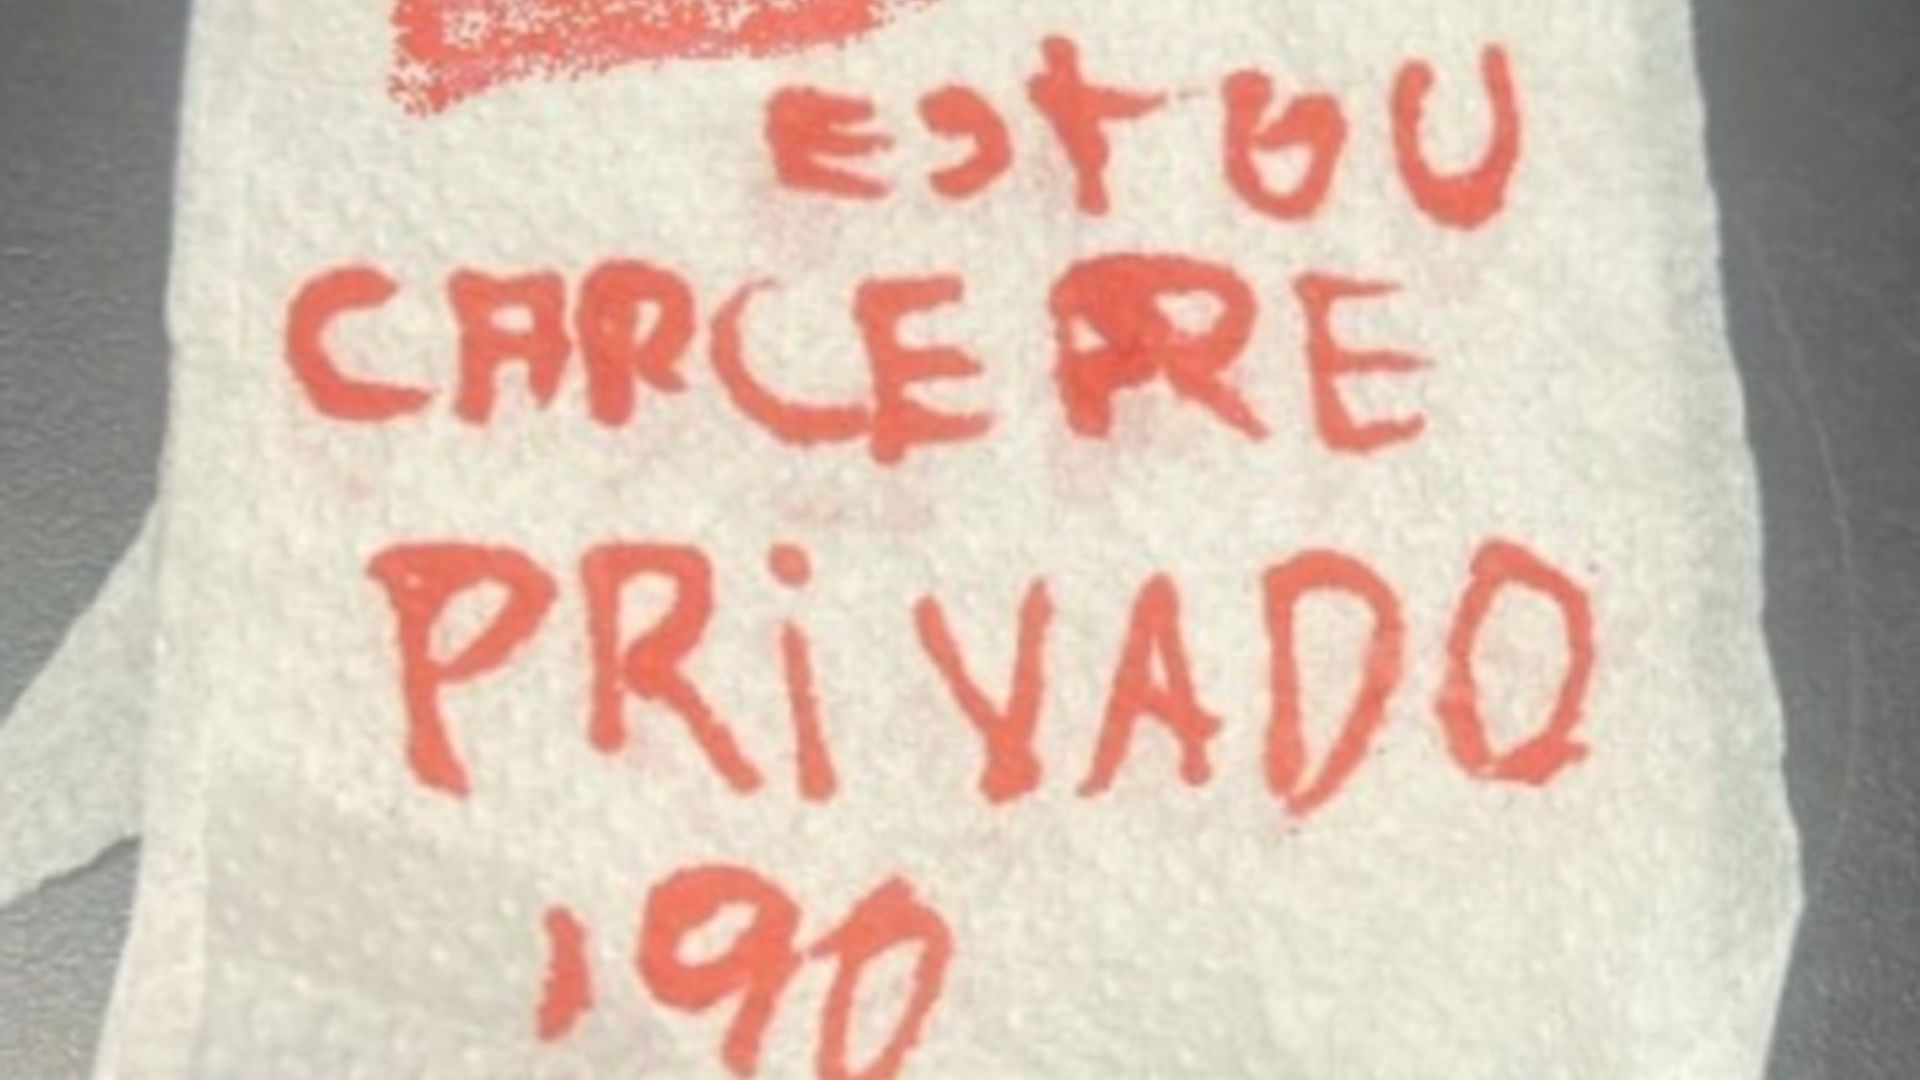 ESTOU
CARCERRE
PRiVADO
190